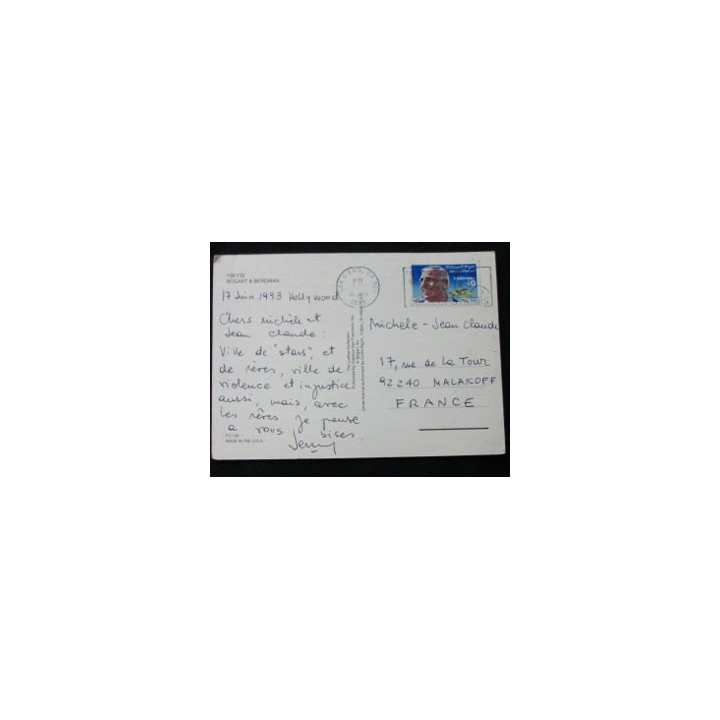 BOGART & BERGMAN
17 Juin 1993 Hollywood
Chers Michèle et
Jean Claude :
Ville de "stars", et
de rêves, ville de
violence et injustice
aussi, mais, avec
les rêves je pense
a vous bises
MADE IN THE U.S.A.
Michele - Jean Claude
17, rue de La Tour
92240 MALAKOFF
FRANCE